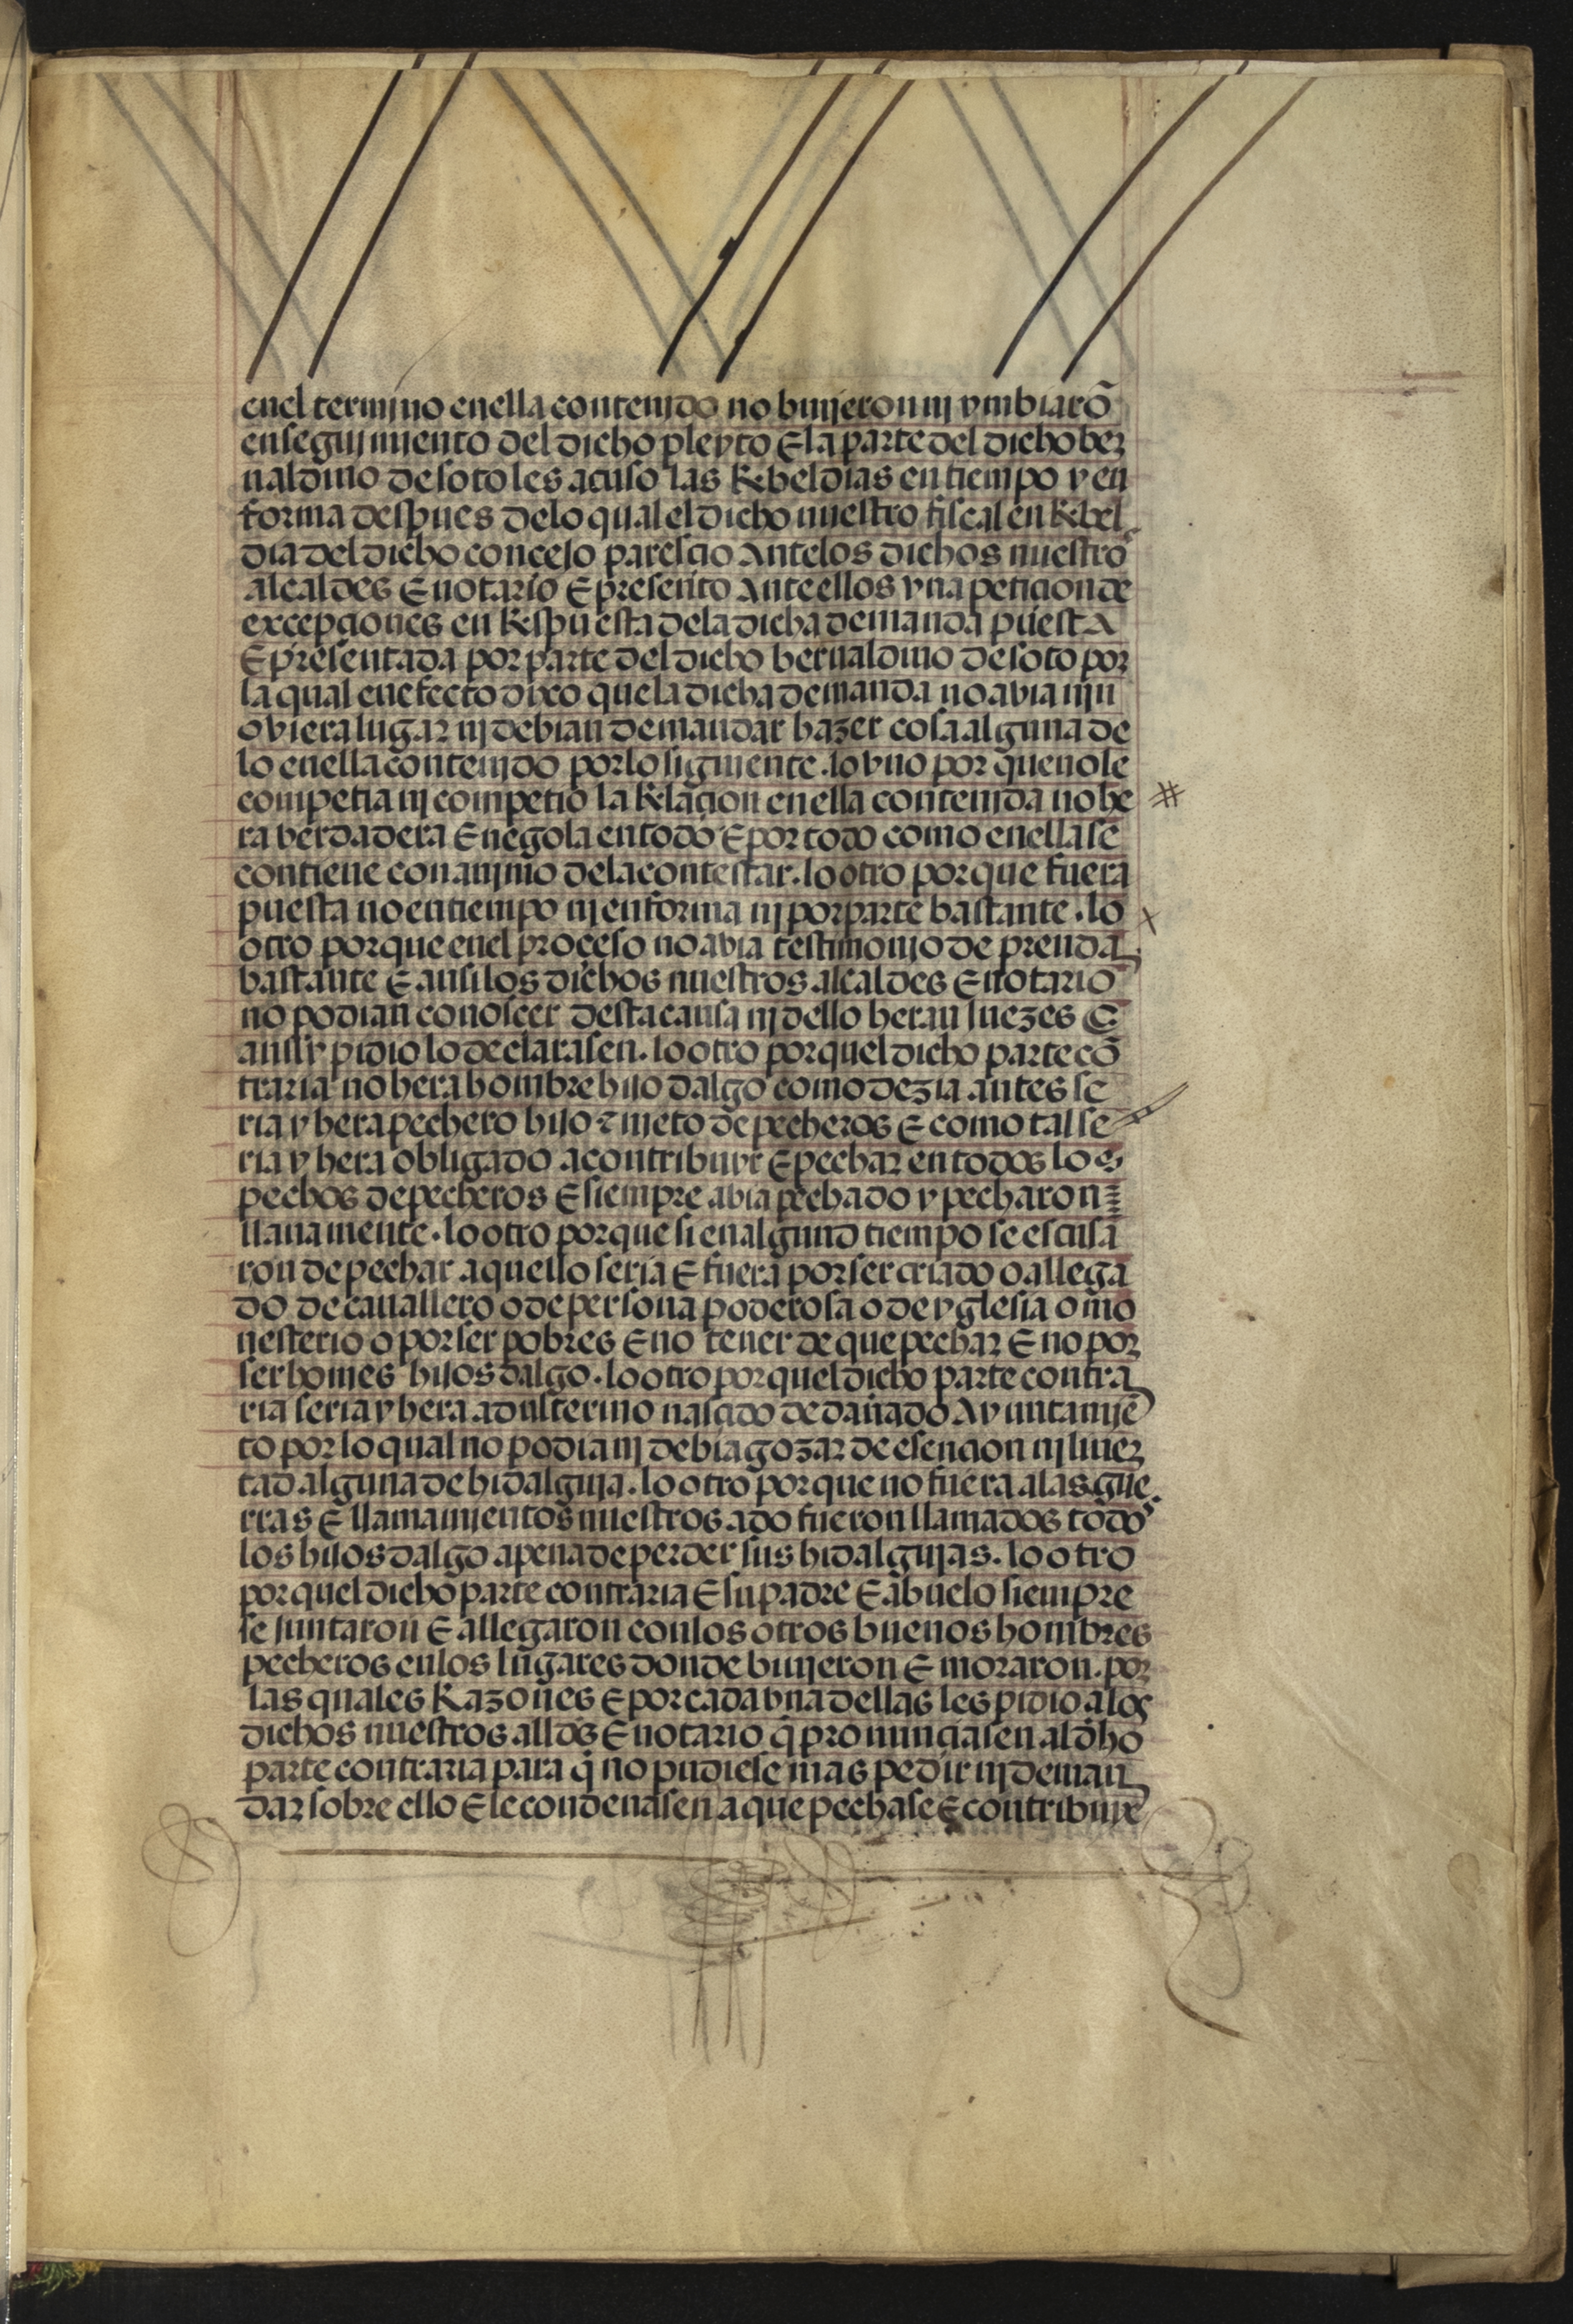 enel termjno enella contenjdo no binjeron nj ymbiarō
en segujmiento del dicho pleyto E la parte del dicho ber
naldino de soto les acuso las Rebeldias en tiempo y en
forma despues delo qual el dicho nuestro fiscal en Rebel
dia del dicho concejo parescio Antelos dichos nuestros
alcaldes E notario E presento Ante ellos vna peticion de
excepciones en Respuesta dela dicha demanda puesta
E presentada por parte del dicho bernaldino de soto por
la qual en efecto dixo que la dicha demanda no avia njn
oviera lugar nj debian de mandar hazer cosa alguna de
lo enella contenjdo por lo siguiente . lo vno por que no le
competia nj competio la Relacion en ella contenjda no he
ra berdadera E negola en todo E por todo como enella se
contiene con anjmo dela contestar . lo otro por que fuera
puesta no en tiempo nj en forma nj por parte bastante . lo
otro por que enel proceso no avia testimonjo de prenda
bastante E ansi los dichos nuestros alcaldes E notario
no podian conoscer desta causa nj dello heran juezes E
ansy pidio lo declarasen . lo otro por quel dicho parte cō
traria no hera hombre hijo dalgo como dezia antes se
ria y hera pechero hijo z nieto de pecheros E como tal se
ria y hera obligado a contribuyr E pechar en todos los
pechos de pecheros E siempre abia pechado y pecharon
llanamente . lo otro por que si en algund tiempo se escusa
ron de pechar aquello seria E fuera por ser criado o allega
do de cauallero o de persona poderosa o de yglesia o mo
nesterio o por ser pobres E no tener de que pechar E no por
ser homes hijos dalgo . lo otro por quel dicho parte contra
ria seria y hera adulterino nascido de dañado Ayuntamjē
to por lo qual no podia nj debia gozar de esencion nj liuer
tad alguna de hidalguja . lo otro por que no fuera alas gue
rras E llamamjentos nuestros ado fueron llamados todos
los hijos dalgo a pena de perder sus hidalgujas . lo otro
por quel dicho parte contraria E su padre E abuelo siempre
se juntaron E allegaron con los otros buenos hombres
pecheros en los lugares donde binjeron E moraron . por
las quales Razones E por cada vna dellas les pidio a los
dichos nuestros alldes E notario q̄ pronunciasen al dho
parte contraria para q̄ no pudiese mas pedir nj deman
dar sobre ello E le condenasen a que pechase E contribuye